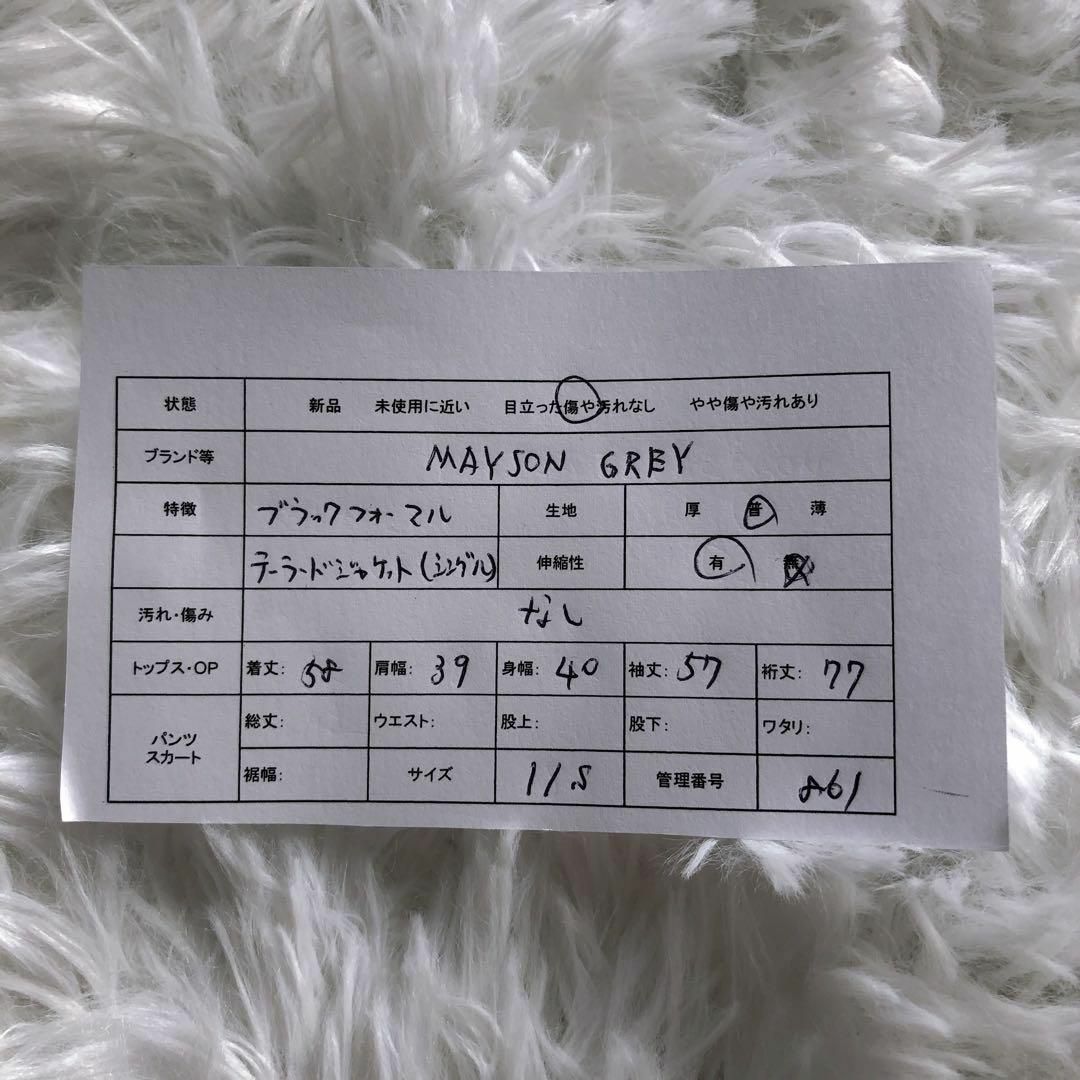 状態 新品 未使用に近い 目立った傷や汚れなし やや傷や汚れあり
ブランド等 MAYSON GREY
特徴 ブラックフォーマル 生地 厚 普 薄
テーラードジャケット(シングル) 伸縮性 有 無
汚れ・傷み なし
トップス・OP 着丈: 58 肩幅: 39 身幅: 40 袖丈: 57 裄丈: 77
パンツ スカート 総丈: ウエスト: 股上: 股下: ワタリ:
裾幅: サイズ 11S 管理番号 861